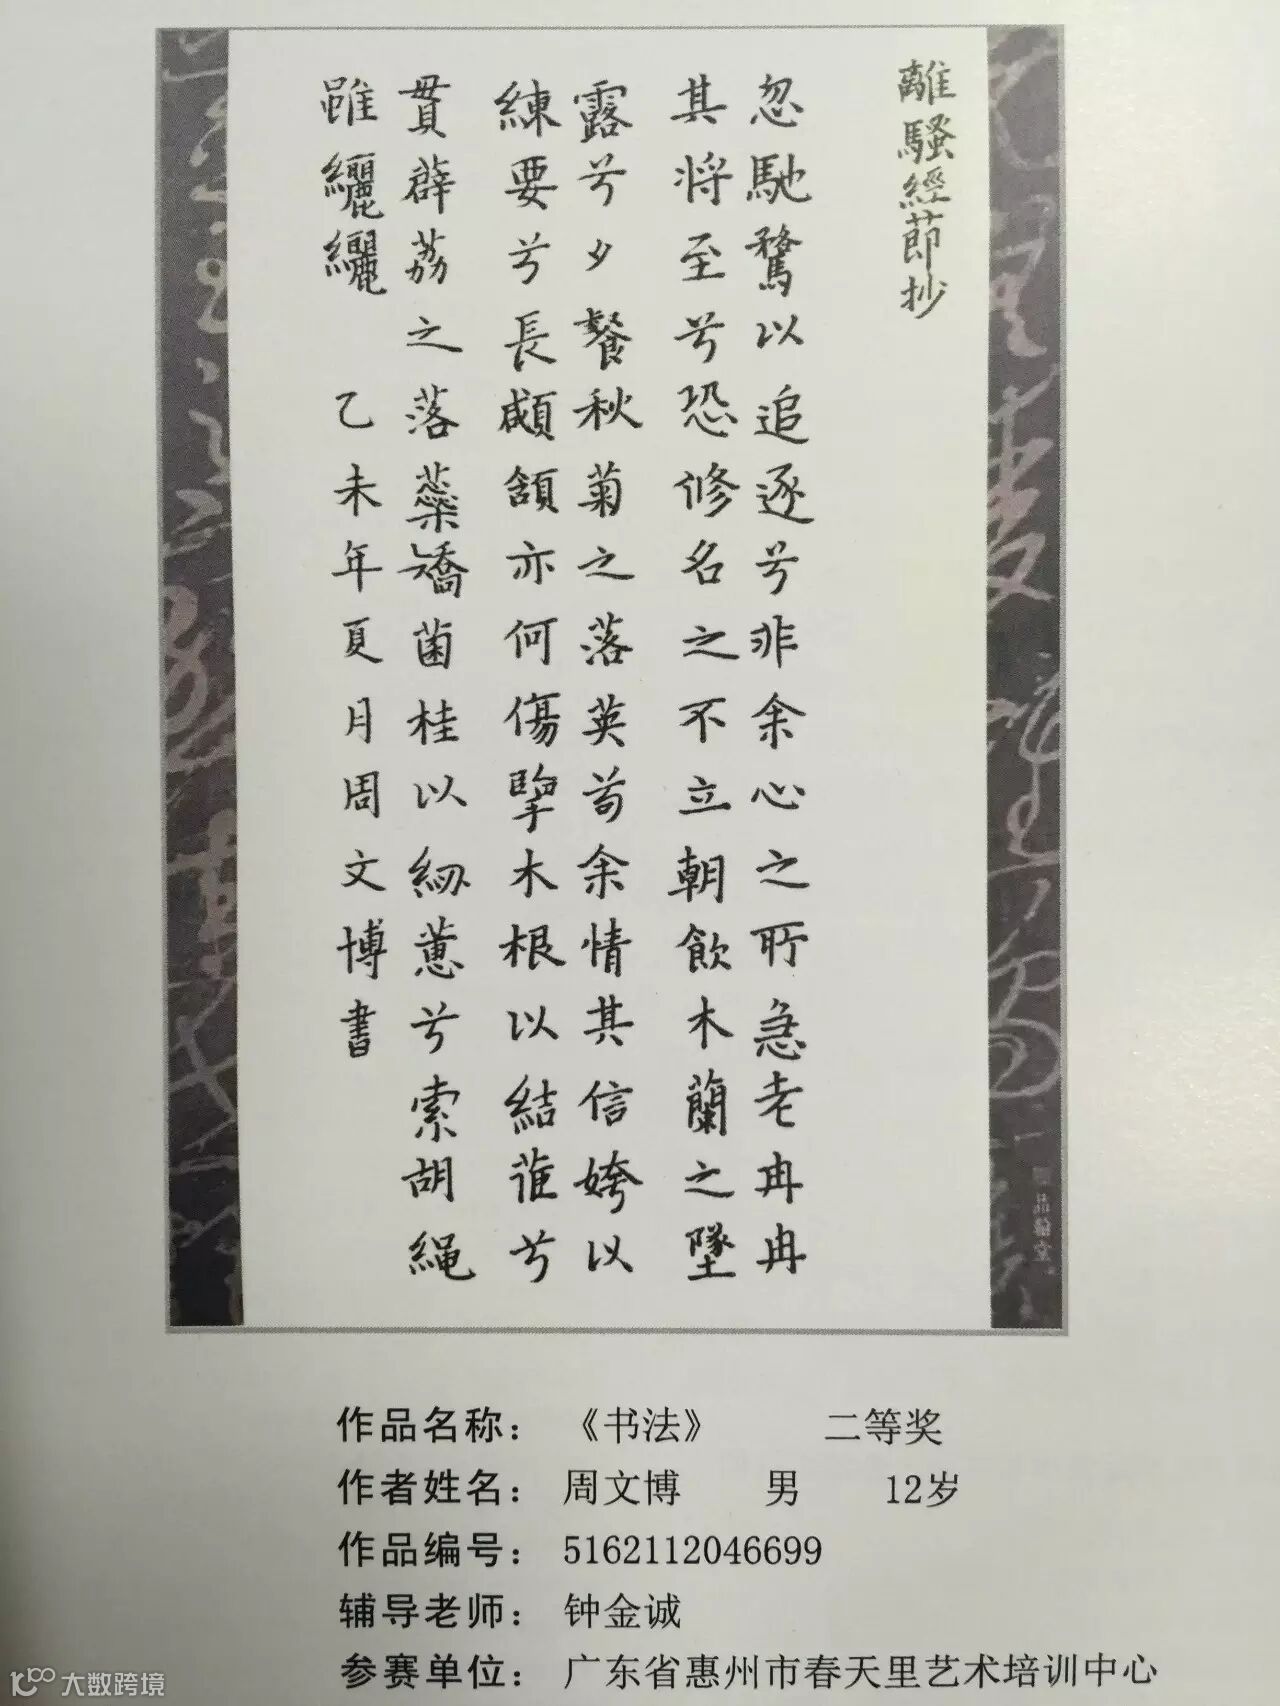 離騷經節抄
忽馳騖以追逐兮非余心之所急老冉冉
其將至兮恐修名之不立朝飲木蘭之墜
露兮夕餐秋菊之落英苟余情其信姱以
練要兮長顑頷亦何傷擥木根以結茝兮
貫薜荔之落蕊矯菌桂以紉蕙兮索胡繩
雖纚纚 乙未年夏月周文博書
作品名称：《书法》 二等奖
作者姓名：周文博 男 12岁
作品编号：5162112046699
辅导老师：钟金诚
参赛单位：广东省惠州市春天里艺术培训中心
大数跨境